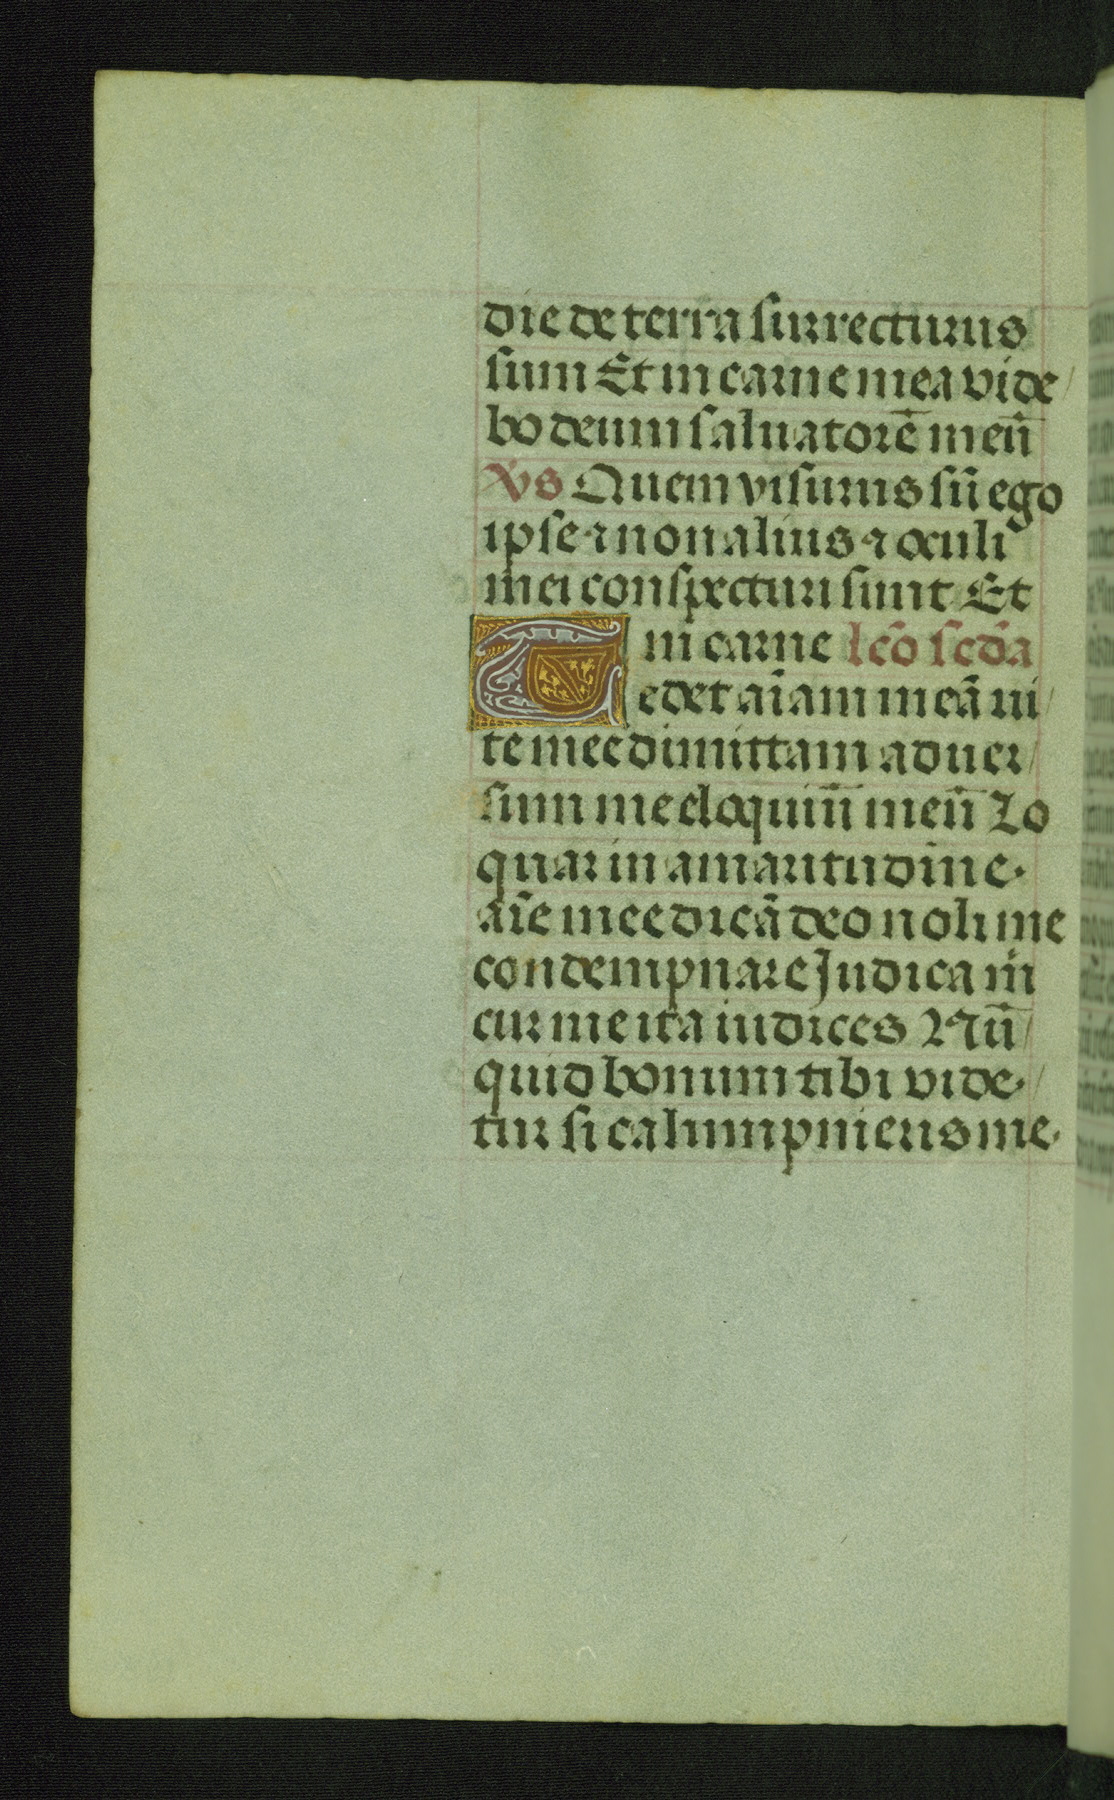 die de terra surrecturus
sum Et in carne mea vide/
bo deum saluatorē meū
Vs Quem visurus sū ego
ipse ⁊ non alius ⁊ oculi
mei conspecturi sunt Et
in carne lcō scda
Tedet aīam meā ui/
te mee dimittam aduer/
sum me eloquiū meū Lo
quar in amaritudine.
aīe mee dicā deo noli me
condempnare Judica m̄
cur me ita iudices Nū/
quid bonum tibi vide./
tur si calumpnieris me.